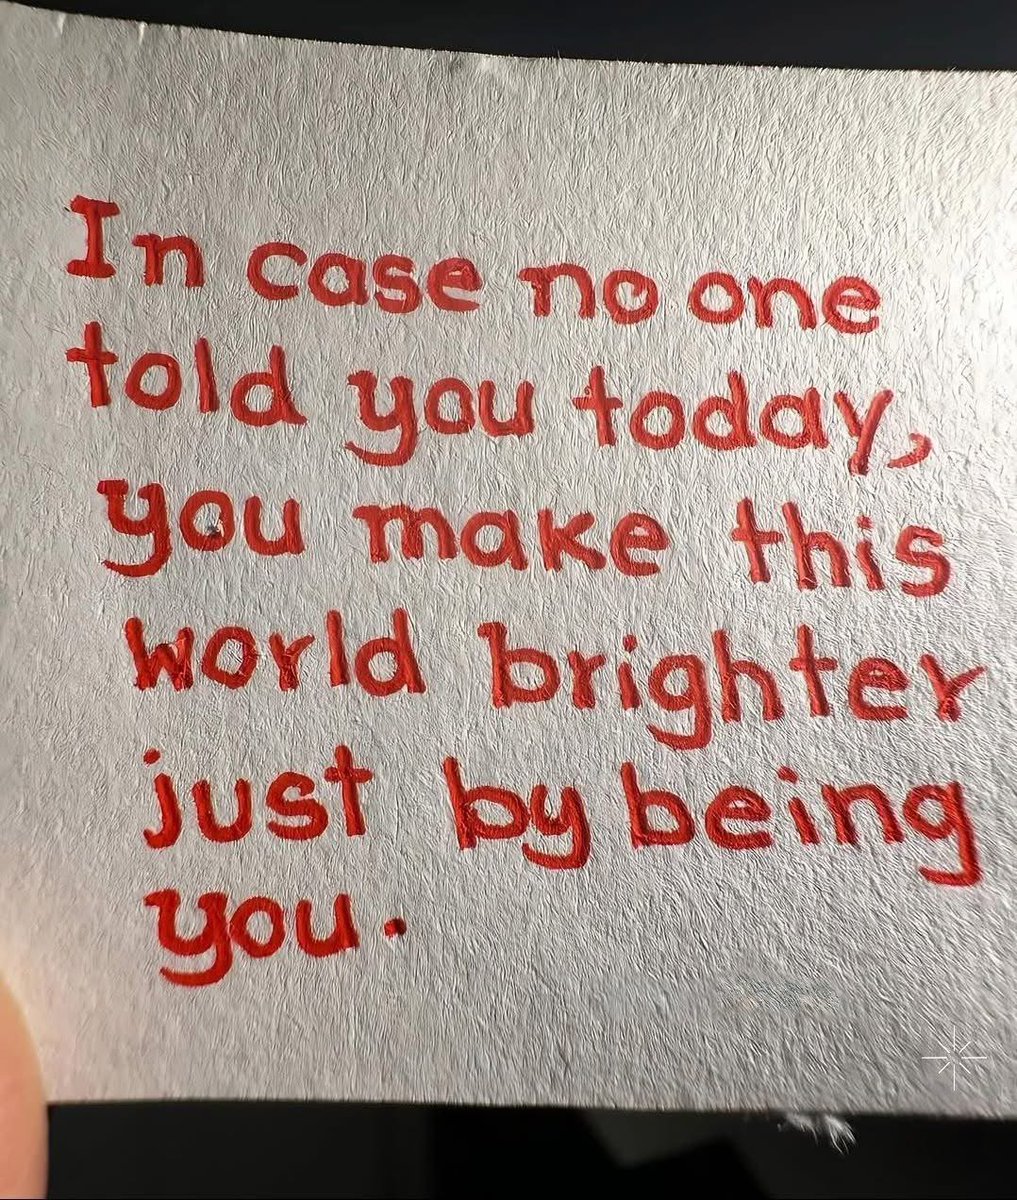 In case no one
told you today,
you make this
world brighter
just by being
you.